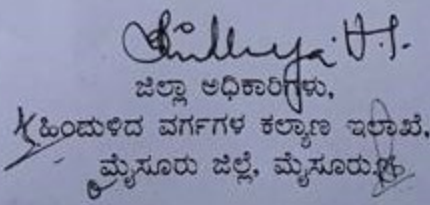 ಜಿಲ್ಲಾ ಅಧಿಕಾರಿಗಳು,
ಹಿಂದುಳಿದ ವರ್ಗಗಳ ಕಲ್ಯಾಣ ಇಲಾಖೆ,
ಮೈಸೂರು ಜಿಲ್ಲೆ, ಮೈಸೂರು.